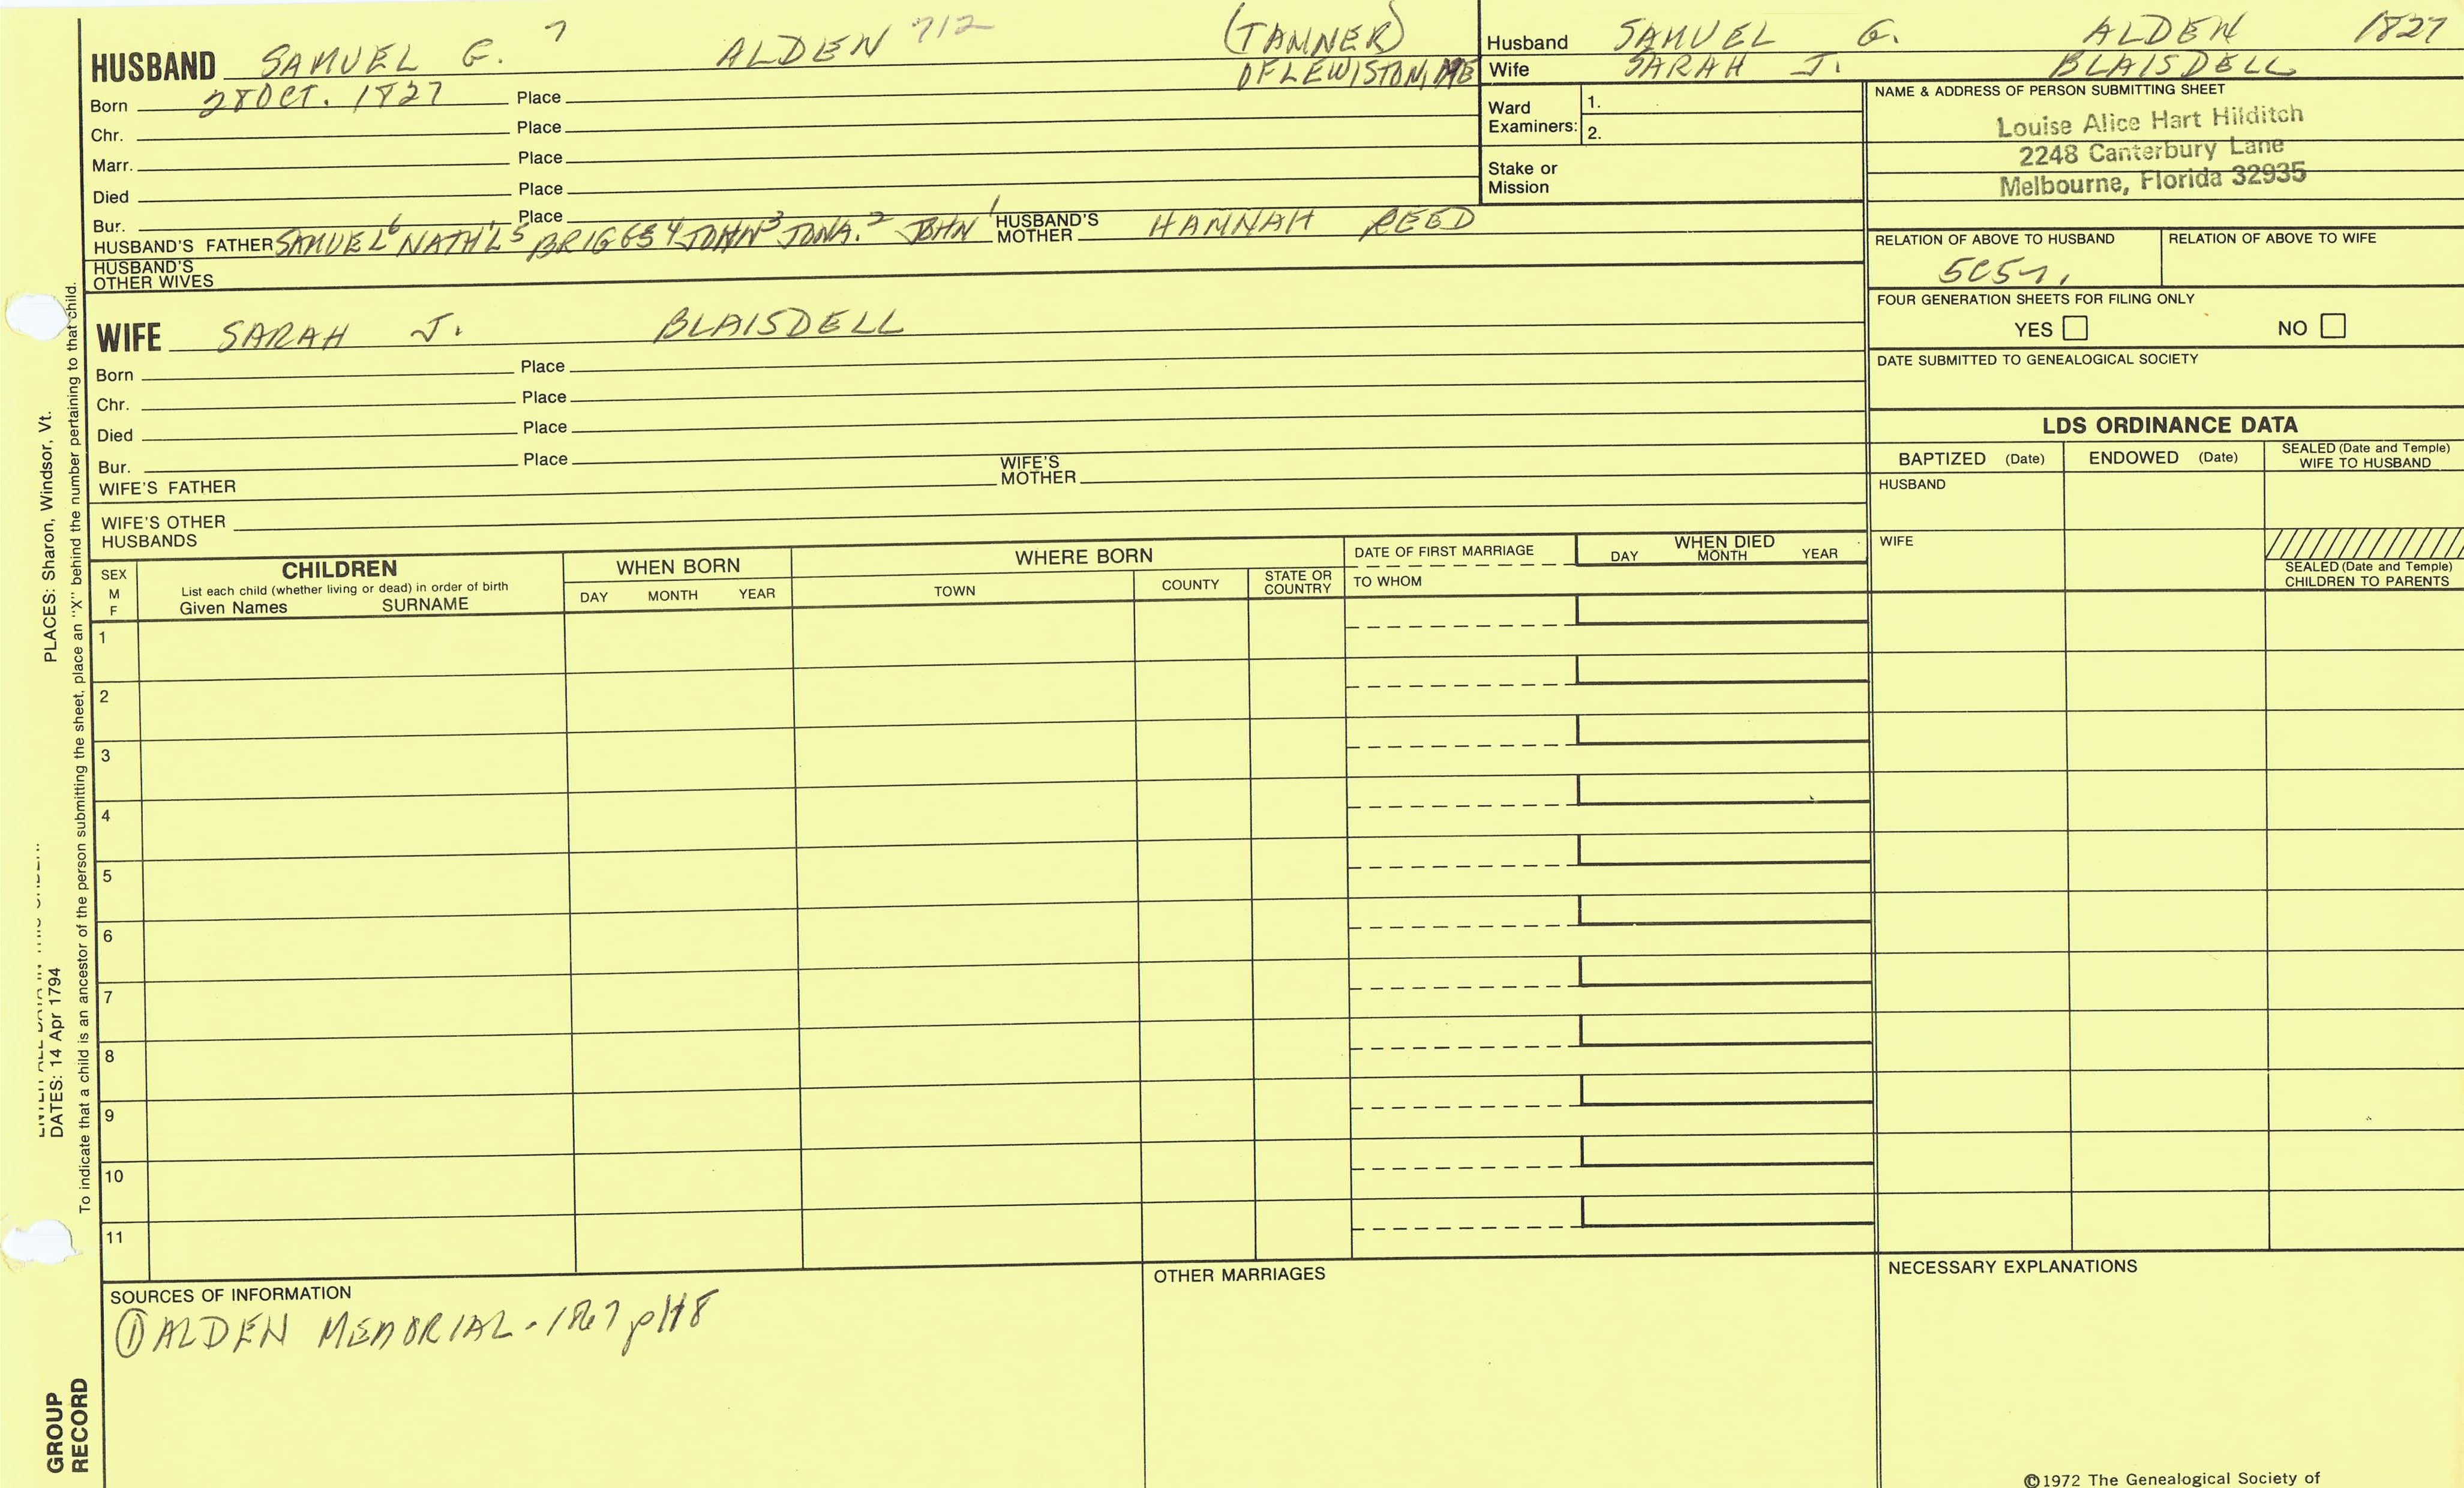 HUSBAND SAMUEL G. 7 ALDEN 712 (TANNER) OF LEWISTON, ME
Born 28 OCT. 1827 Place
Chr. Place
Marr. Place
Died Place
Bur. Place
HUSBAND'S FATHER SAMUEL6 NATH'L5 BRIGGS4 JOHN3 JONA.2 JOHN1 HUSBAND'S MOTHER HANNAH REED
HUSBAND'S OTHER WIVES
WIFE SARAH J. BLAISDELL
Born Place
Chr. Place
Died Place
Bur. Place
WIFE'S FATHER WIFE'S MOTHER
WIFE'S OTHER HUSBANDS
Husband SAMUEL G. ALDEN 1827
Wife SARAH J. BLAISDELL
Ward Examiners: 1.
2.
Stake or Mission
NAME & ADDRESS OF PERSON SUBMITTING SHEET
Louise Alice Hart Hilditch
2248 Canterbury Lane
Melbourne, Florida 32935
RELATION OF ABOVE TO HUSBAND RELATION OF ABOVE TO WIFE
FOUR GENERATION SHEETS FOR FILING ONLY
YES NO
DATE SUBMITTED TO GENEALOGICAL SOCIETY
LDS ORDINANCE DATA
BAPTIZED (Date) ENDOWED (Date) SEALED (Date and Temple) WIFE TO HUSBAND
HUSBAND
WIFE
SEALED (Date and Temple) CHILDREN TO PARENTS
SEX M F
CHILDREN
List each child (whether living or dead) in order of birth
Given Names SURNAME
WHEN BORN
DAY MONTH YEAR
WHERE BORN
TOWN COUNTY STATE OR COUNTRY
DATE OF FIRST MARRIAGE
TO WHOM
WHEN DIED
DAY MONTH YEAR
1
2
3
4
5
6
7
8
9
10
11
SOURCES OF INFORMATION
① ALDEN MEMORIAL - 1867 p118
OTHER MARRIAGES
NECESSARY EXPLANATIONS
©1972 The Genealogical Society of
PLACES: Sharon, Windsor, Vt.
DATES: 14 Apr 1794
To indicate that a child is an ancestor of the person submitting the sheet, place an "X" behind the number pertaining to that child.
GROUP
RECORD